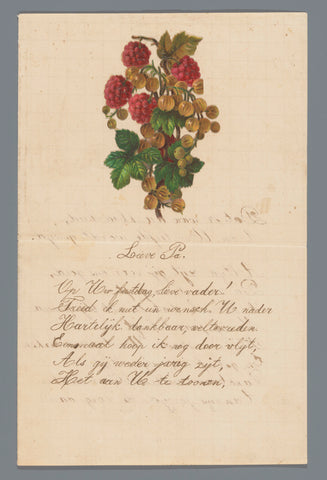 Lieve Pa.
Op Uw feestdag, lieve vader!
Treed ik met un wensch U nader
Hartelijk dankbaar, veltevreden.
Eenmaal hoop ik nog door vlijt,
Als gij weder jarig zijt,
Het aan U te toonen,